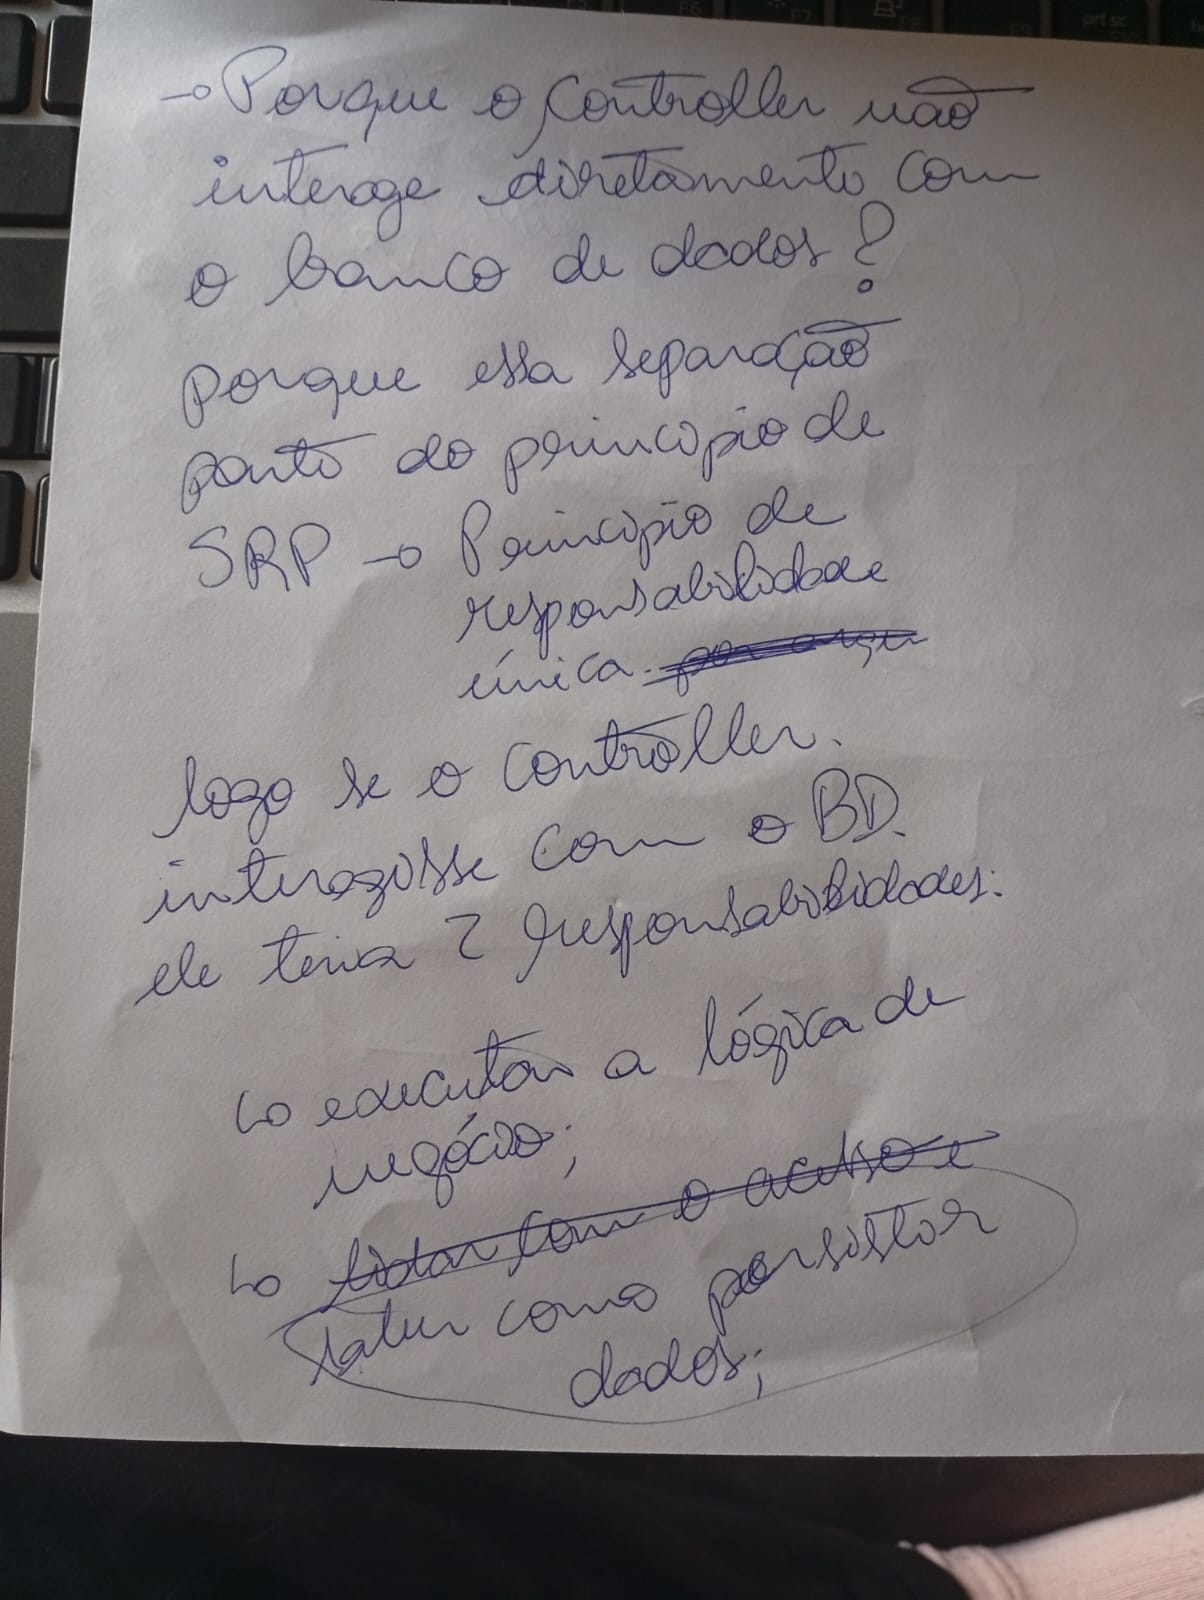 → Porque o controller não
interage diretamente com
o banco de dados?
porque essa separação
parte do principio de
SRP → Principio de
responsabilidade
única.
logo se o controller.
interagisse com o BD.
ele teria 2 responsabilidades:
↳ executar a lógica de
negócio;
↳ lidar com o acesso e
saber como persistir
dados;
prt sc